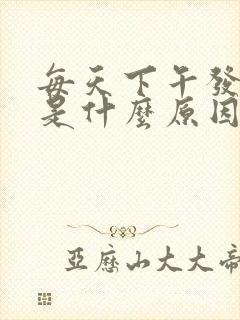 每天下午發
是什麼原因
亞歷山大大帝